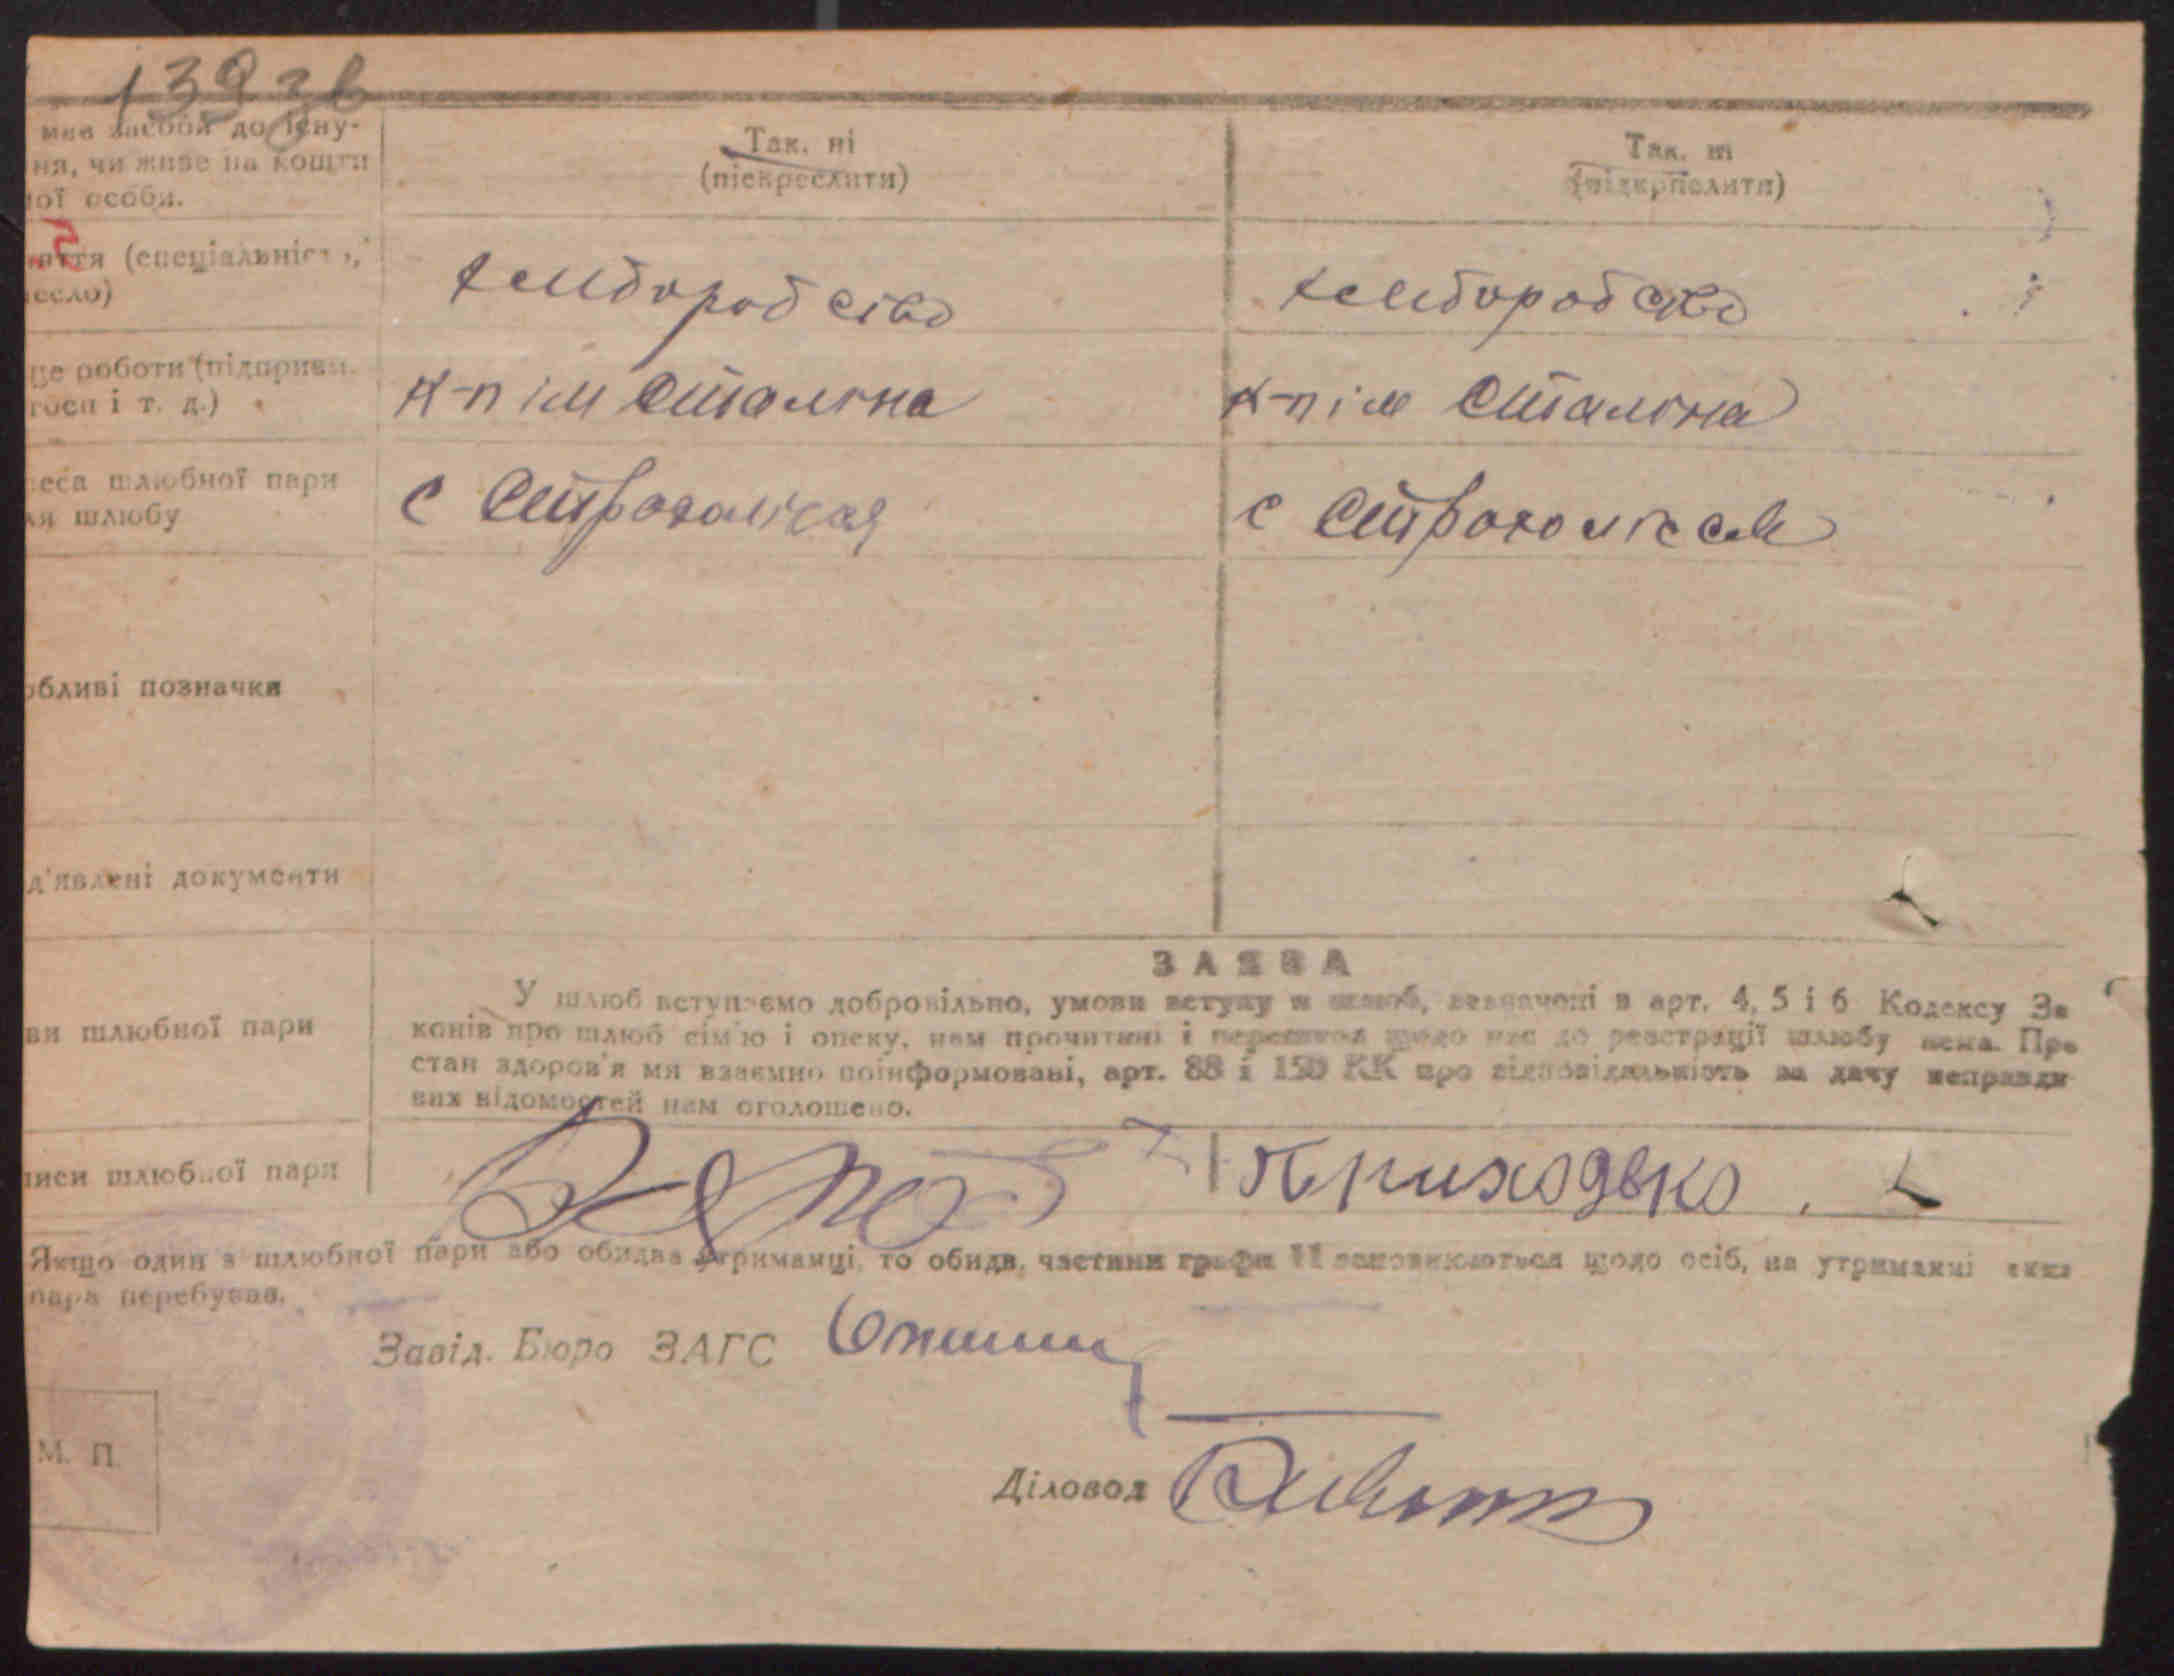 139 зв
має засоби до існу-
ня, чи живе на кошти
ої особи.
Так, ні
(піскреслити)
Так, ні
(підкреслити)
яття (спеціальність,
есло)
хліборобство
хліборобство
це роботи (підприєм.
госп і т. д.)
К-п ім Сталіна
К-п ім Сталіна
еса шлюбної пари
ля шлюбу
с Строкаліская
с
обливі позначки
д'явлені документи
ЗАЯВА
ви шлюбної пари
У шлюб вступаємо добровільно, умови вступу в шлюб, зазначені в арт. 4, 5 і 6 Кодексу За
конів про шлюб сім'ю і опеку, нам прочитані і перешкод щодо нас до реєстрації шлюбу нема. Про
стан здоров'я ми взаємно поінформовані, арт. 88 і 150 КК про відповідальність за дачу неправди
вих відомостей нам оголошено.
писи шлюбної пари
Приходько
Якщо один з шлюбної пари або обидва утриманці, то обидв. частини графи 11 заповнюються щодо осіб, на утриманні яких
пара перебуває.
Завід. Бюро ЗАГС
М. П.
Діловод